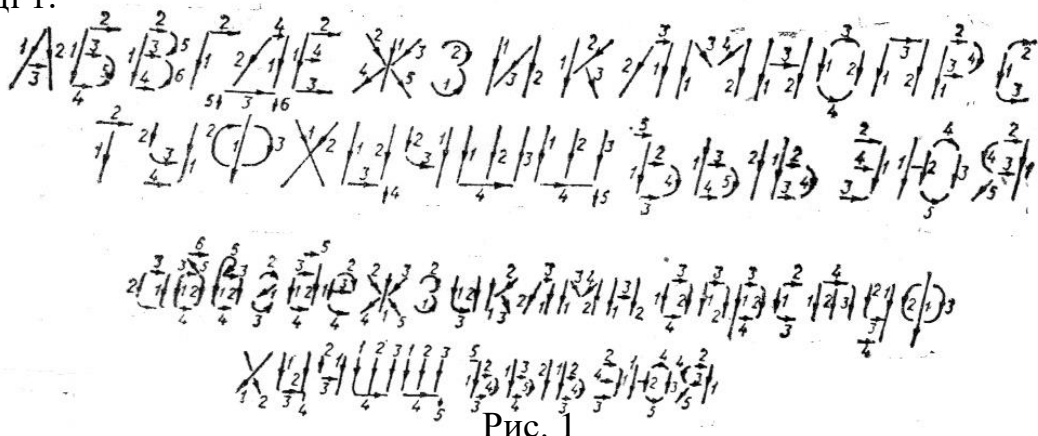 ці 1.
А Б В Г Д Е Ж З И К Л М Н О П Р С
Т У Ф Х Ц Ч Ш Щ Ъ Ь Ы Э Ю Я
а б в г д е ж з и к л м н о п р с т у ф
х ц ч ш щ ъ ь ы э ю я
Рис. 1